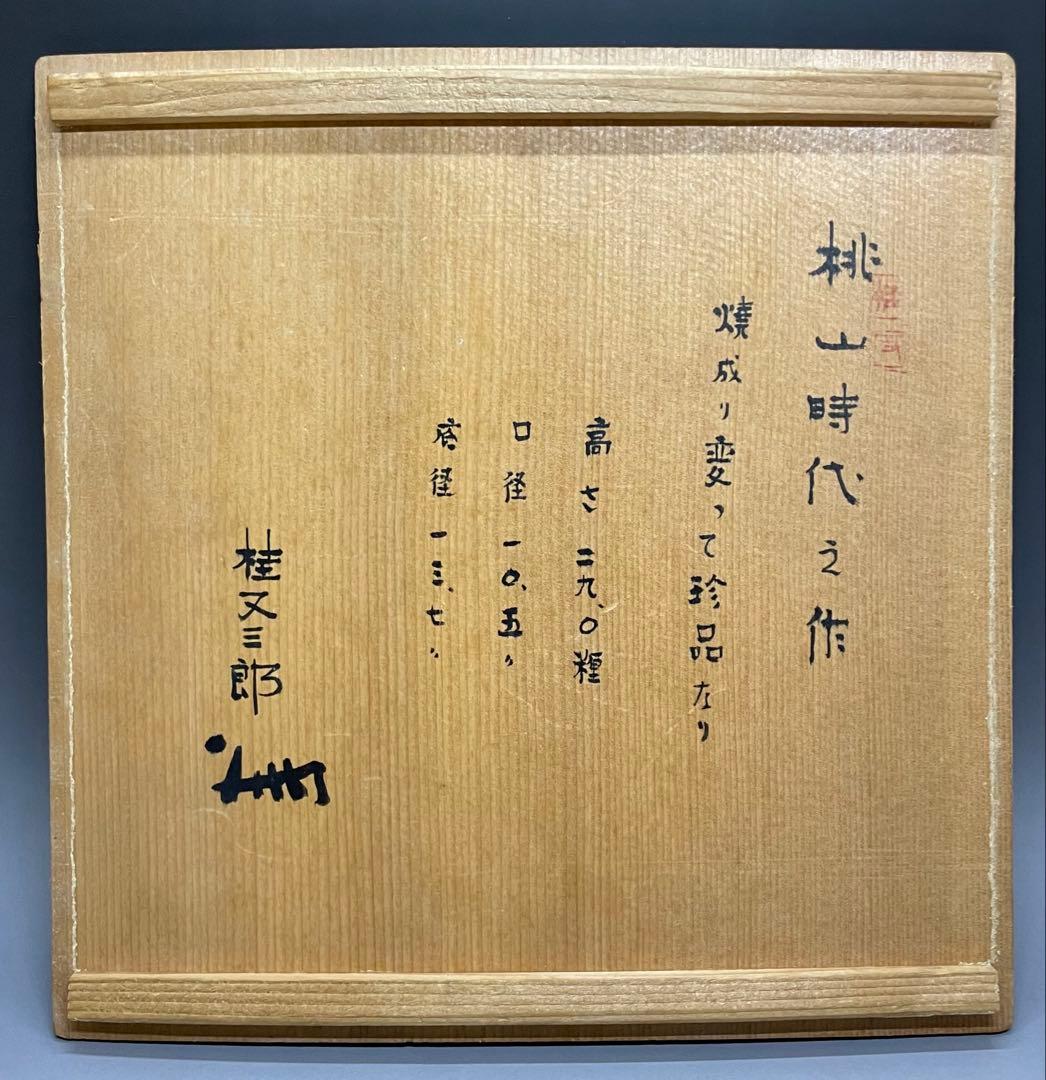 桃山時代之作
焼成り変って珍品なり
高さ二九、〇糎
口径一〇、五〃
底径一三、七〃
桂又三郎